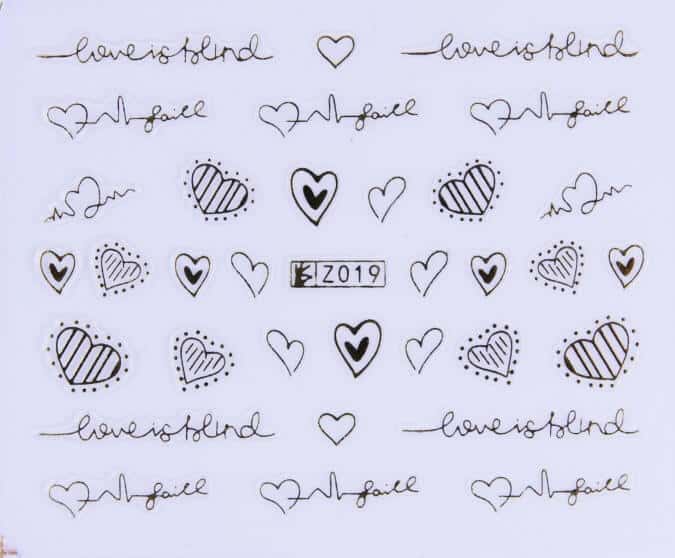 loveisblind loveisblind
faill faill faill
Z019
loveisblind loveisblind
faill faill faill